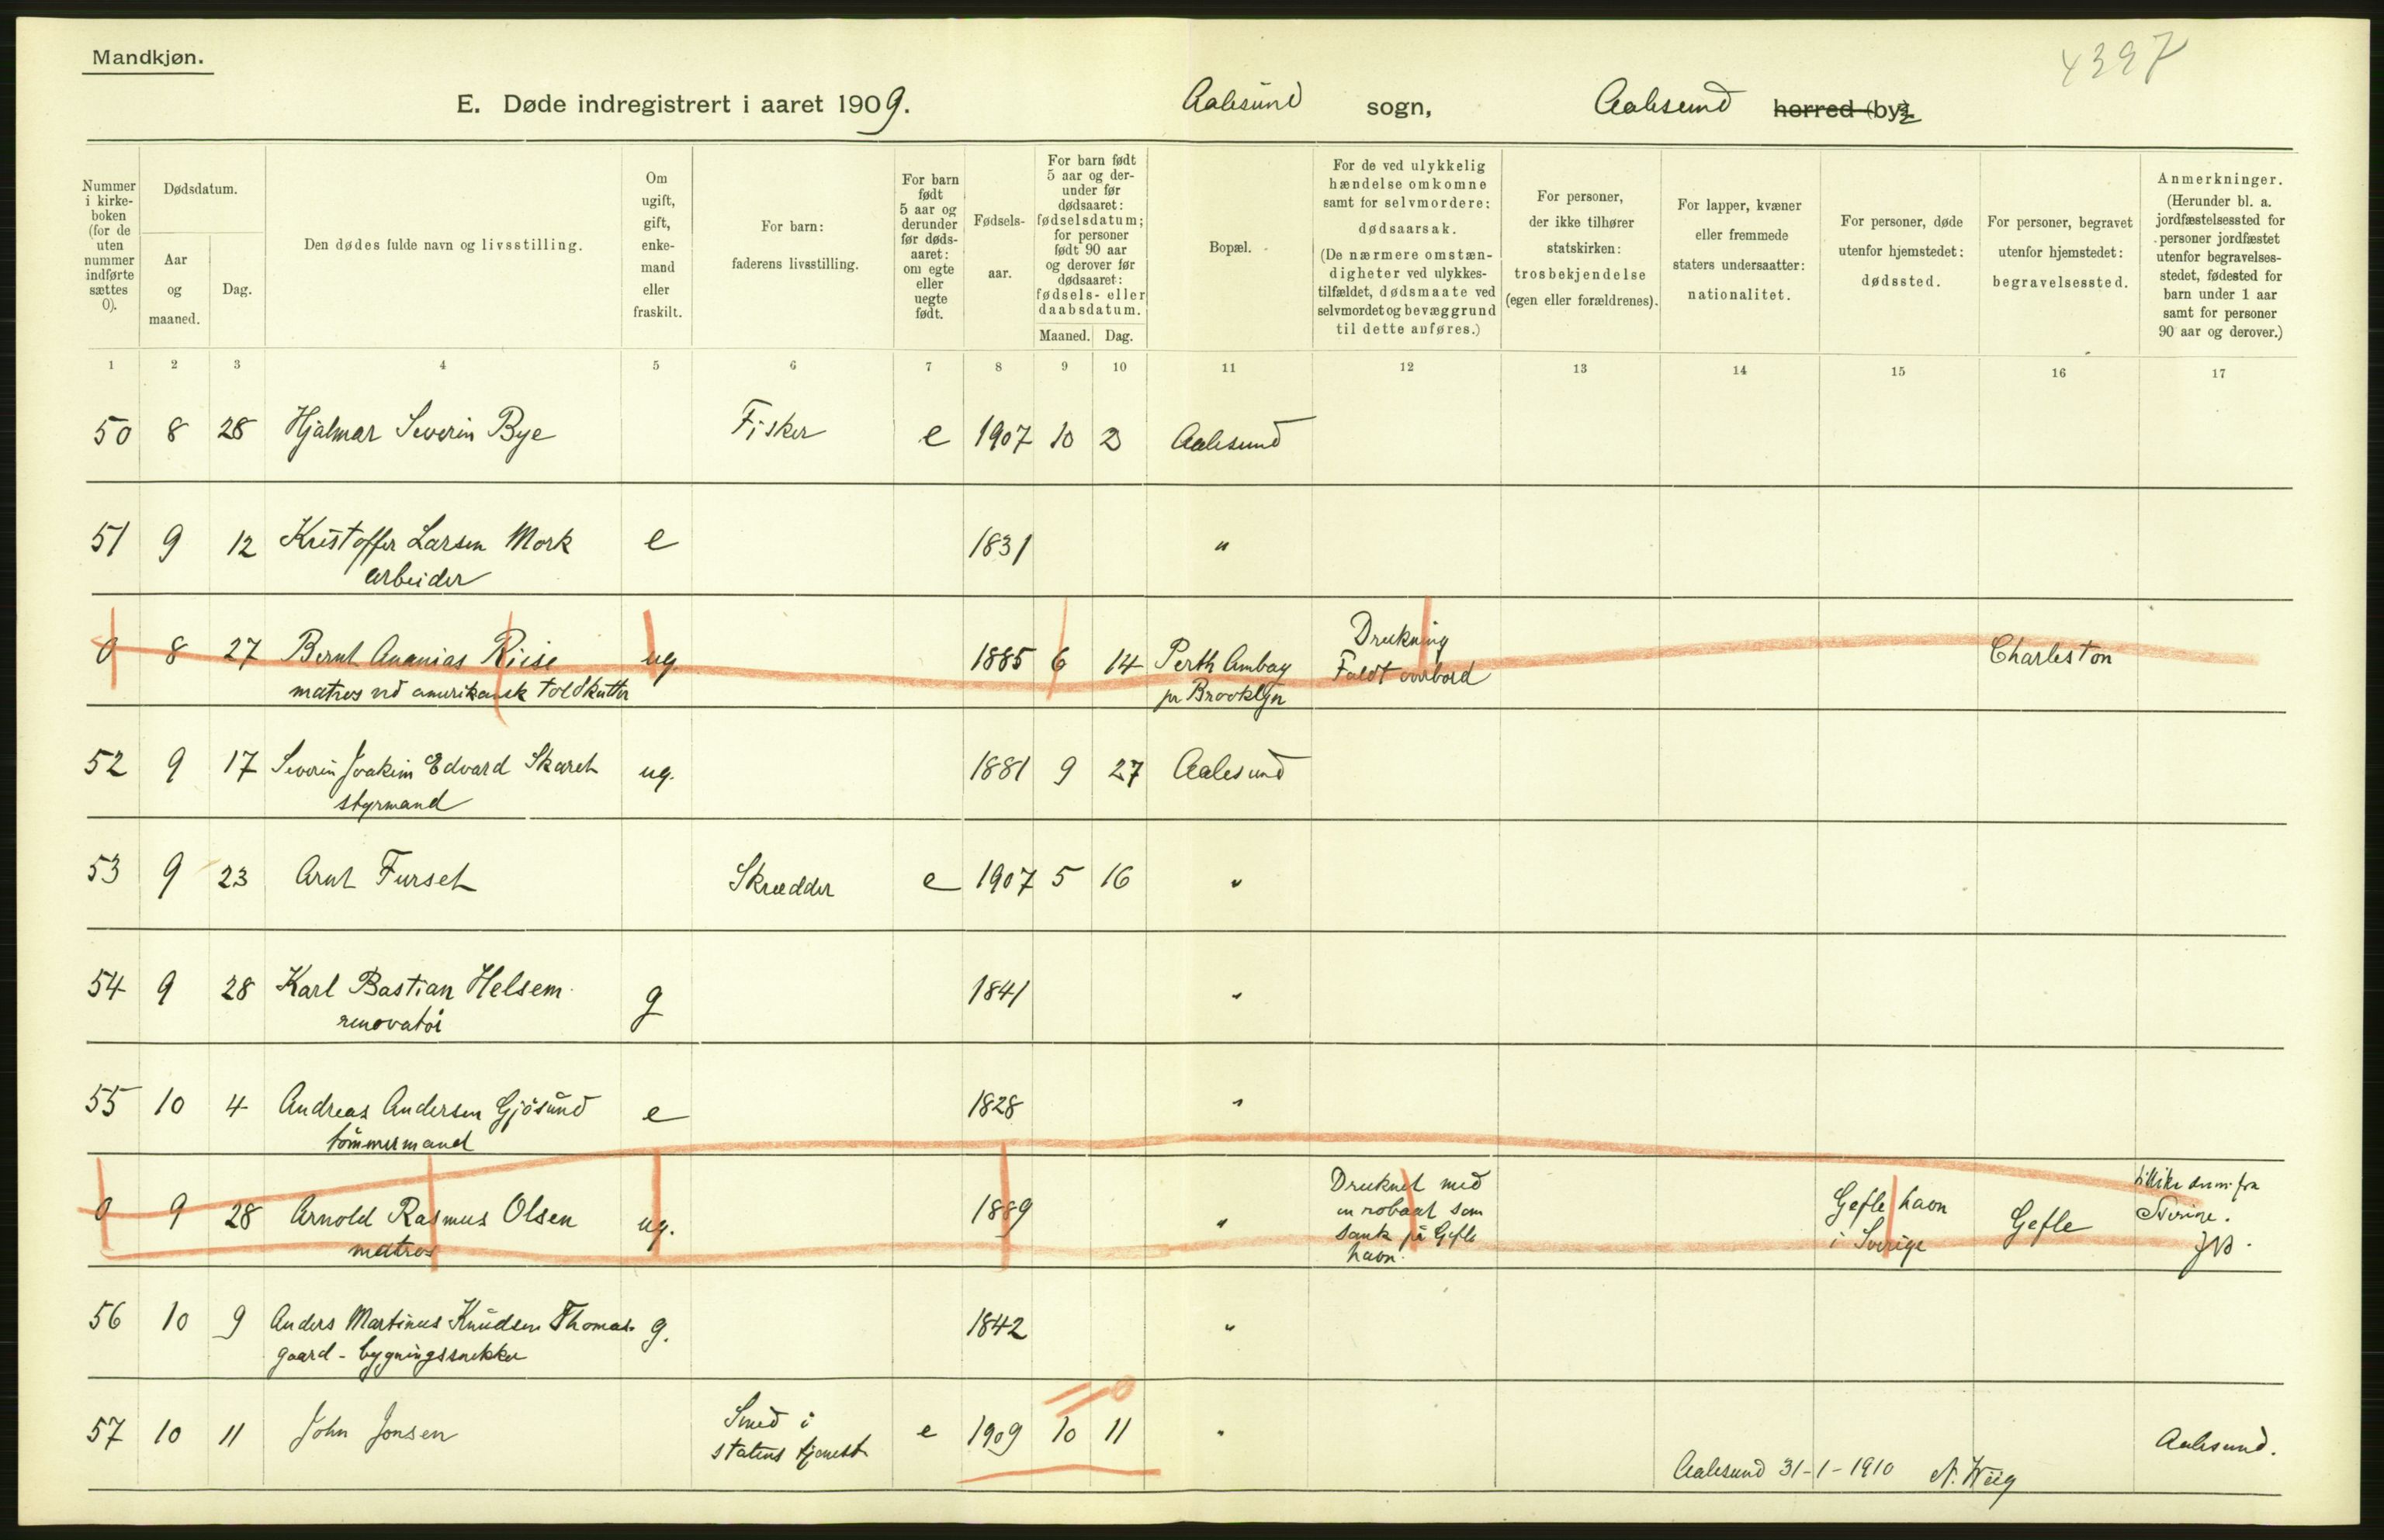 Mandkjøn.
4397
E. Døde indregistrert i aaret 1909. Aalesund sogn, Aalesund herred (by)
Nummer i kirke- boken (for de uten nummer indførte sættes 0).
Dødsdatum.
Aar og maaned.
Dag.
Den dødes fulde navn og livsstilling.
Om ugift, gift, enke- mand eller fraskilt.
For barn: faderens livsstilling.
For barn født 5 aar og derunder før døds- aaret: om egte eller uegte født.
Fødsels- aar.
For barn født 5 aar og der- under før dødsaaret: fødselsdatum; for personer født 90 aar og derover før dødsaaret: fødsels- eller daabsdatum.
Maaned. Dag.
Bopæl.
For de ved ulykkelig hændelse omkomne samt for selvmordere: dødsaarsak. (De nærmere omstæn- digheter ved ulykkes- tilfældet, dødsmaate ved selvmordet og bevæggrund til dette anføres.)
For personer, der ikke tilhører statskirken: trosbekjendelse (egen eller forældrenes).
For lapper, kvæner eller fremmede staters undersaatter: nationalitet.
For personer, døde utenfor hjemstedet: dødssted.
For personer, begravet utenfor hjemstedet: begravelsessted.
Anmerkninger. (Herunder bl. a. jordfæstelsessted for personer jordfæstet utenfor begravelses- stedet, fødested for barn under 1 aar samt for personer 90 aar og derover.)
1 2 3 4 5 6 7 8 9 10 11 12 13 14 15 16 17
50 8 28 Hjalmar Severin Bye Fisker e 1907 10 2 Aalesund
51 9 12 Kristoffer Larsen Mork e 1831 "
arbeider
0 8 27 Bernt Ananias Riise ug. 1885 6 14 Perth Ambay Drukning Charleston
matros ved amerikansk toldkutter pr Brooklyn Faldt overbord
52 9 17 Severin Joakim Edvard Skaret ug. 1881 9 27 Aalesund
styrmand
53 9 23 Arnt Furset Skrædder e 1907 5 16 "
54 9 28 Karl Bastian Helsem g 1841 "
renovatør
55 10 4 Andreas Andersen Gjøsund e 1828 "
tømmermand
0 9 28 Arnold Rasmus Olsen ug. 1889 " Druknet med Gefle havn Gefle
matros en robaat som i Sverige Sverige.
sank på Gefle
havn.
56 10 9 Anders Martinus Knudsen Thomas- g. 1842 "
gaard - bygningssnekker
57 10 11 John Jonsen Smed i e 1909 10 11 " Aalesund.
statens tjeneste
Aalesund 31-1-1910 N. Wiig